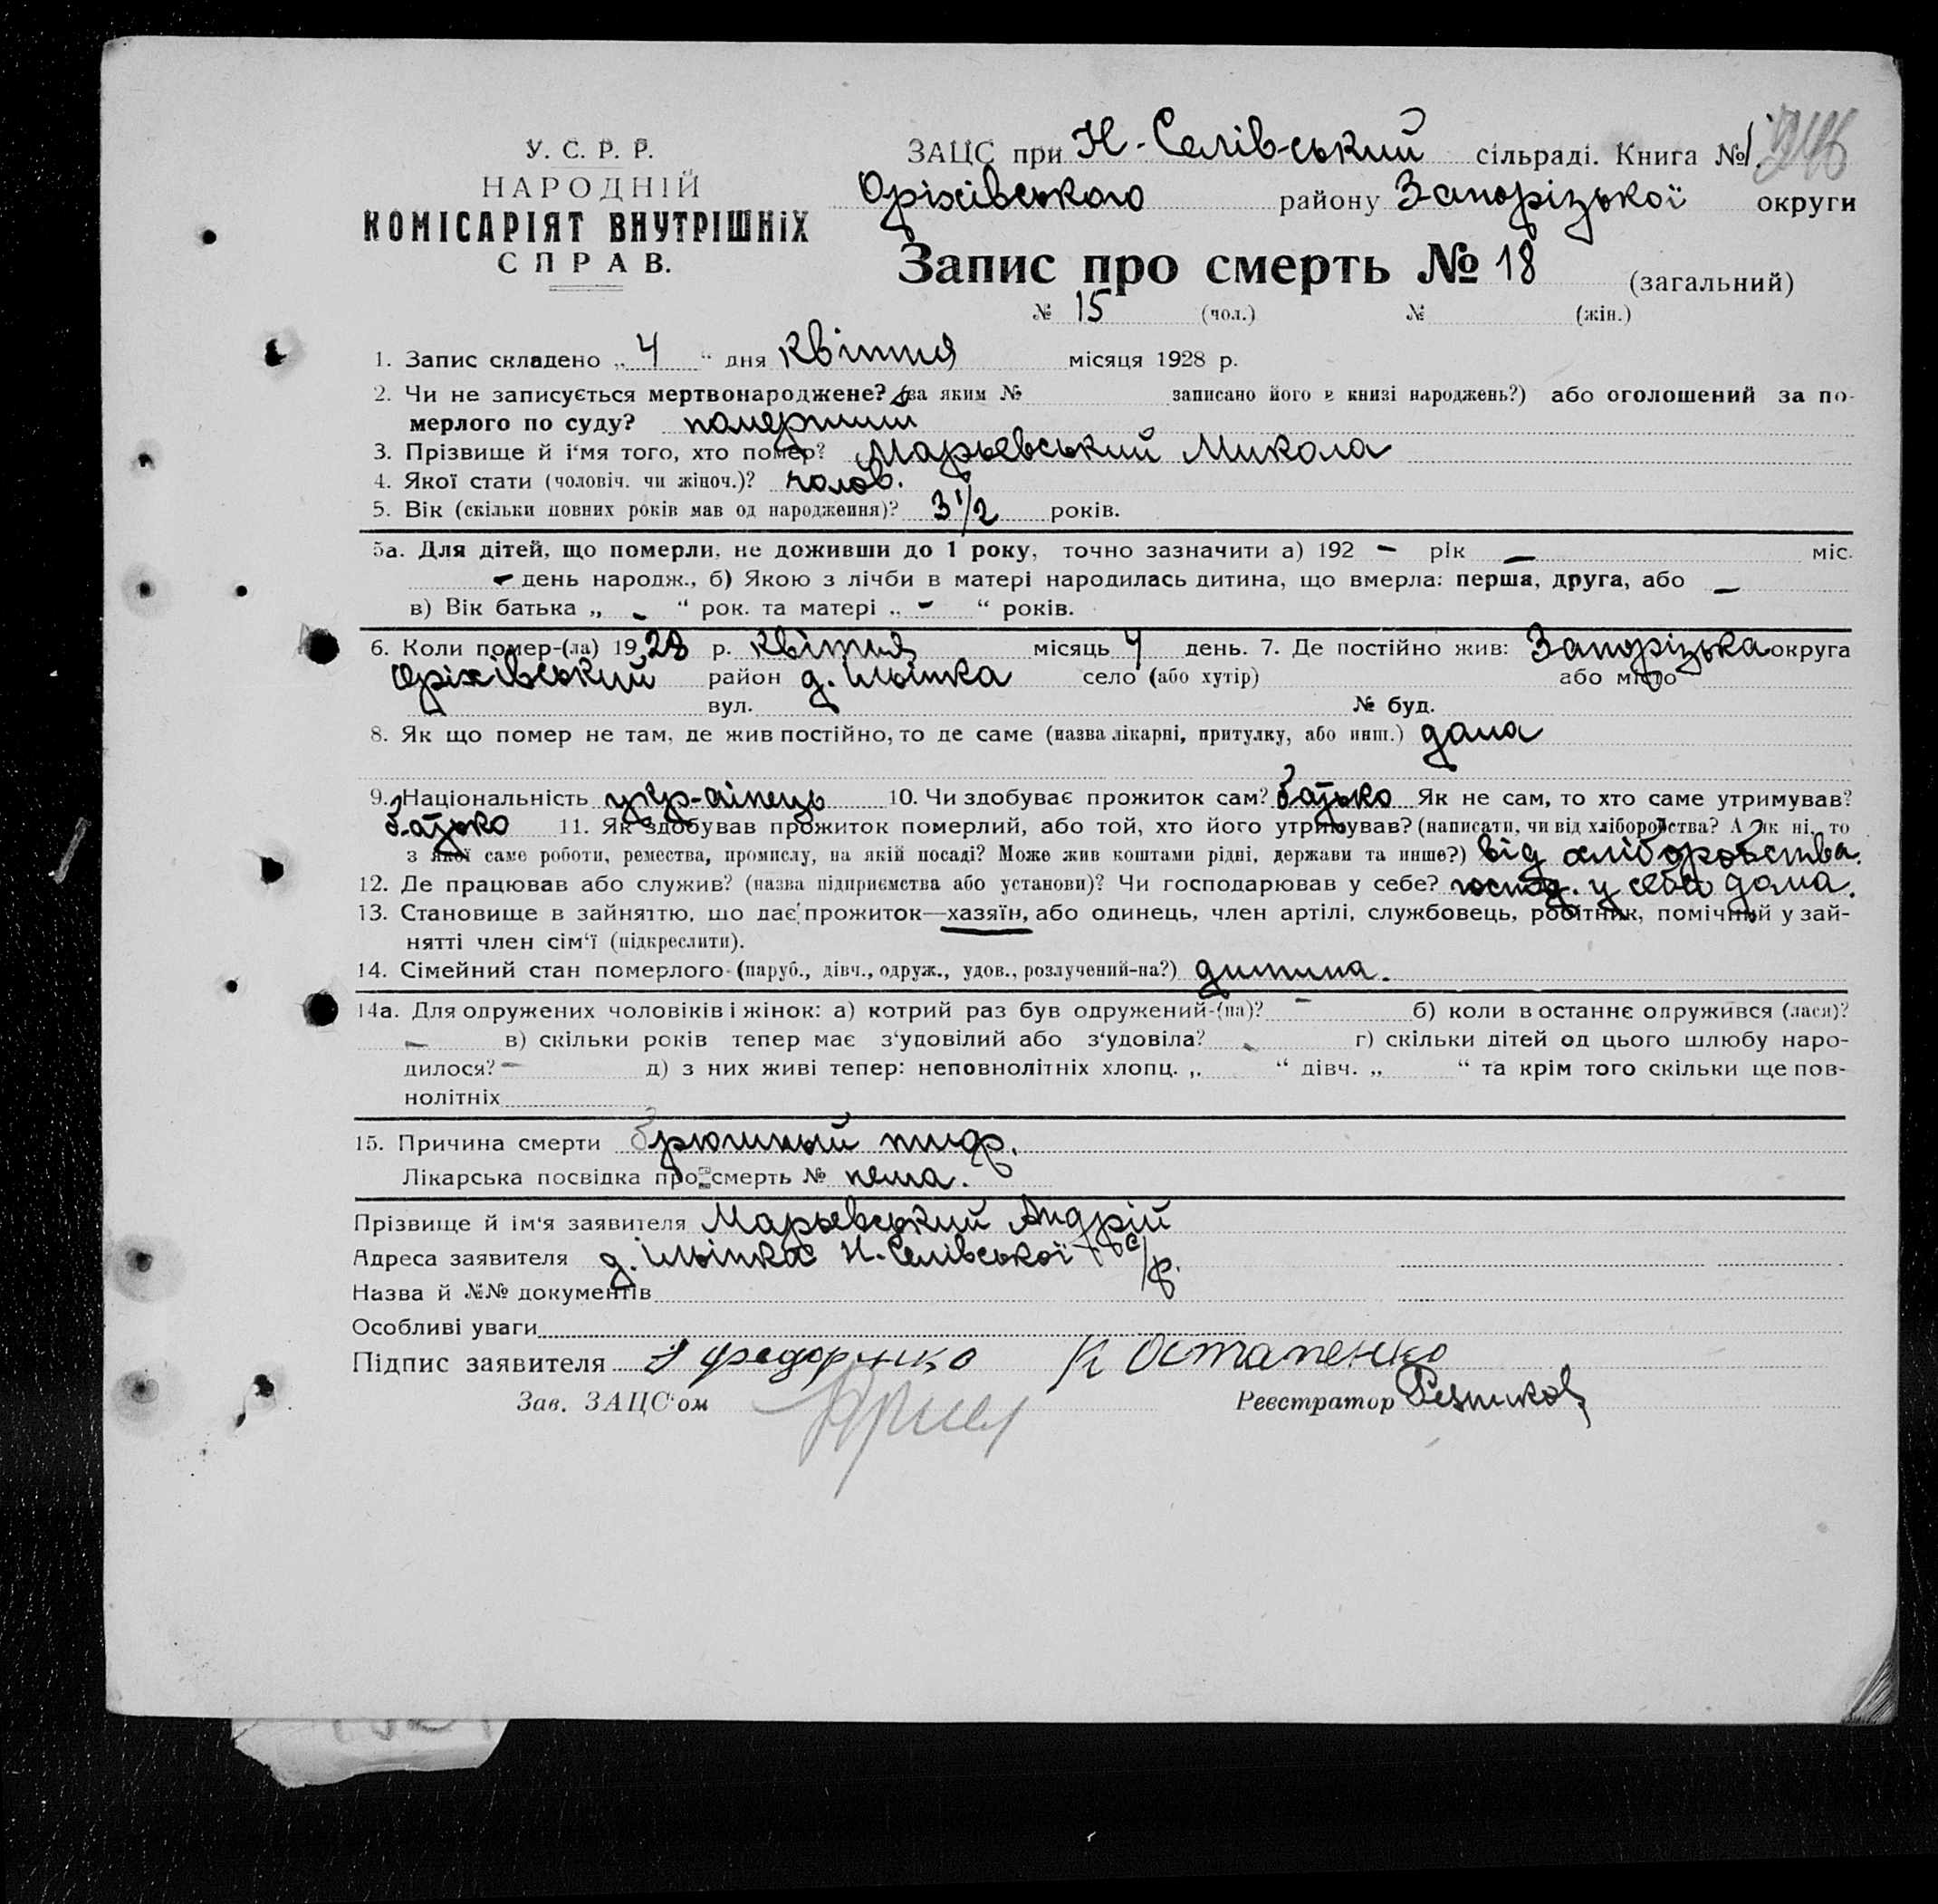 У. С. Р. Р.
НАРОДНІЙ
КОМІСАРІЯТ ВНУТРІШНІХ
СПРАВ.
ЗАЦС при Н-Селівський сільраді. Книга №1.
Оріхівського району Запорізької округи
Запис про смерть № 18 (загальний)
№ 15 (чол.) № (жін.)
1. Запис складено „4“ дня квітня місяця 1928 р.
2. Чи не записується мертвонароджене? (за яким № записано його в книзі народжень?) або оголошений за по-
мерлого по суду? померший
3. Прізвище й і'мя того, хто помер? Марьевський Микола
4. Якої стати (чоловіч. чи жіноч.)? чолов.
5. Вік (скільки повних років мав од народження)? 3 1/2 років.
5а. Для дітей, що померли, не доживши до 1 року, точно зазначити а) 192 – рік – міс.
– день народж., б) Якою з лічби в матері народилась дитина, що вмерла: перша, друга, або –
в) Вік батька „ - “ рок. та матері „ - “ років.
6. Коли помер-(ла) 1928 р. квітня місяць 4 день. 7. Де постійно жив: Запорізька округа
Оріхівський район д. Ільінка село (або хутір) або місто
вул. № буд.
8. Як що помер не там, де жив постійно, то де саме (назва лікарні, притулку, або инш.) дома
9. Національність укр-аінець 10. Чи здобуває прожиток сам? батько Як не сам, то хто саме утримував?
батько 11. Як здобував прожиток померлий, або той, хто його утримував? (написати, чи від хліборобства? А як ні, то
з якої саме роботи, ремества, промислу, на якій посаді? Може жив коштами рідні, держави та инше?) від хліборобства.
12. Де працював або служив? (назва підприємства або установи)? Чи господарював у себе? господ. у себе дома.
13. Становище в зайняттю, що дає прожиток—хазяїн, або одинець, член артілі, службовець, робітник, помічний у зай-
нятті член сім'ї (підкреслити).
14. Сімейний стан померлого (паруб., дівч., одруж., удов., розлучений-на?) дитина.
14а. Для одружених чоловіків і жінок: а) котрий раз був одружений-(на)? – б) коли востаннє одружився (лася)?
– в) скільки років тепер має з'удовілий або з'удовіла? - г) скільки дітей од цього шлюбу наро-
дилося? – д) з них живі тепер: неповнолітніх хлопц. „ “ дівч. „ “ та крім того скільки ще пов-
нолітніх
15. Причина смерти брюшный тиф.
Лікарська посвідка про смерть № нема.
Прізвище й ім'я заявителя Марьевський Андрій
Адреса заявителя д. Ільінка Н-Селівської с/р.
Назва й №№ документів
Особливі уваги
Підпис заявителя Федоренко К Остапенко
Зав. ЗАЦС'ом Реєстратор Резников